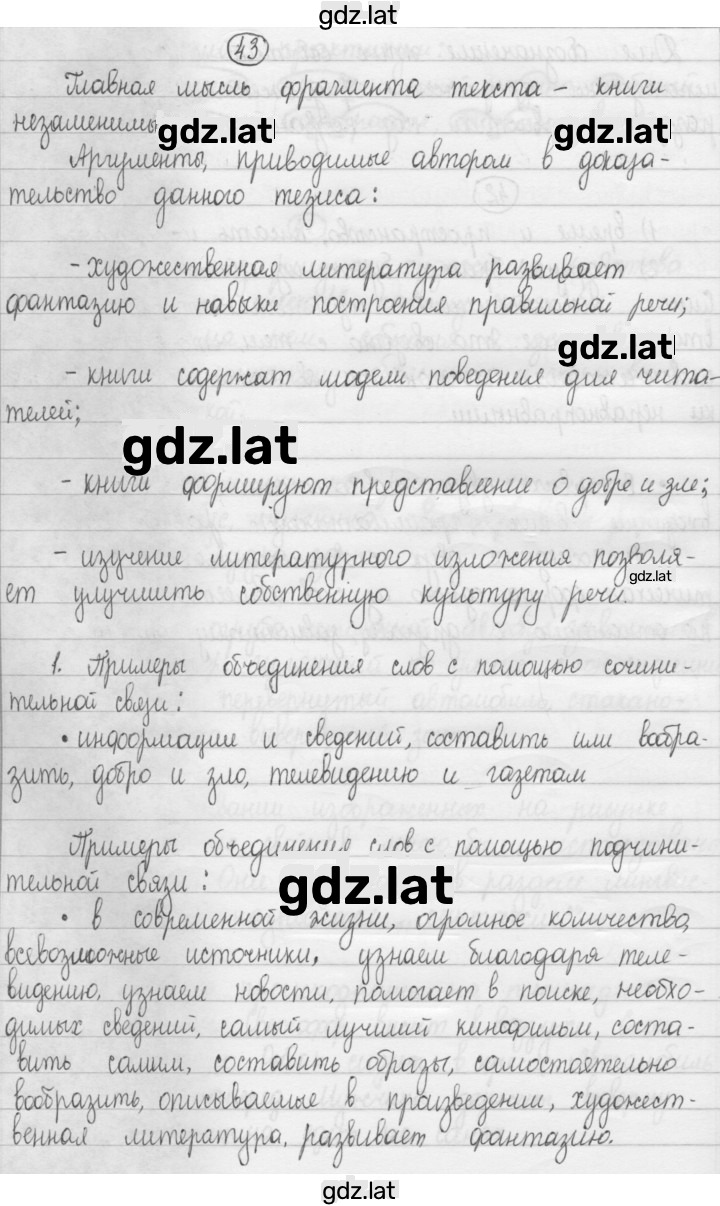 gdz.lat
43
Главная мысль фрагмента текста – книги
незаменимы
gdz.lat gdz.lat
Аргументы, приводимые автором в доказа-
тельство данного тезиса:
- художественная литература развивает
фантазию и навыки построения правильной речи;
gdz.lat
- книги содержат модели поведения для чита-
телей;
gdz.lat
- книги формируют представление о добре и зле;
- изучение литературного изложения позволя-
gdz.lat
ет улучшить собственную культуру речи.
1. Примеры объединения слов с помощью сочини-
тельной связи:
• информации и сведений, составить или вообра-
зить, добро и зло, телевидению и газетам
Примеры объединения слов с помощью подчини-
тельной связи:
gdz.lat
• в современной жизни, огромное количество,
всевозможные источники, узнаем благодаря теле-
видению, узнаем новости, помогает в поиске, необхо-
димых сведений, самый лучший кинофильм, соста-
вить самим, составить образы, самостоятельно
вообразить, описываемые в произведении, художест-
венная литература, развивает фантазию.
gdz.lat